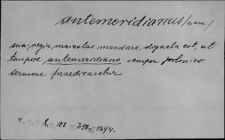 antemeridianus (nom)
sua regia maiestas mandare dignata est, ut
tempore antemeridiano semper polonico
sermone praedicaretur
1694.